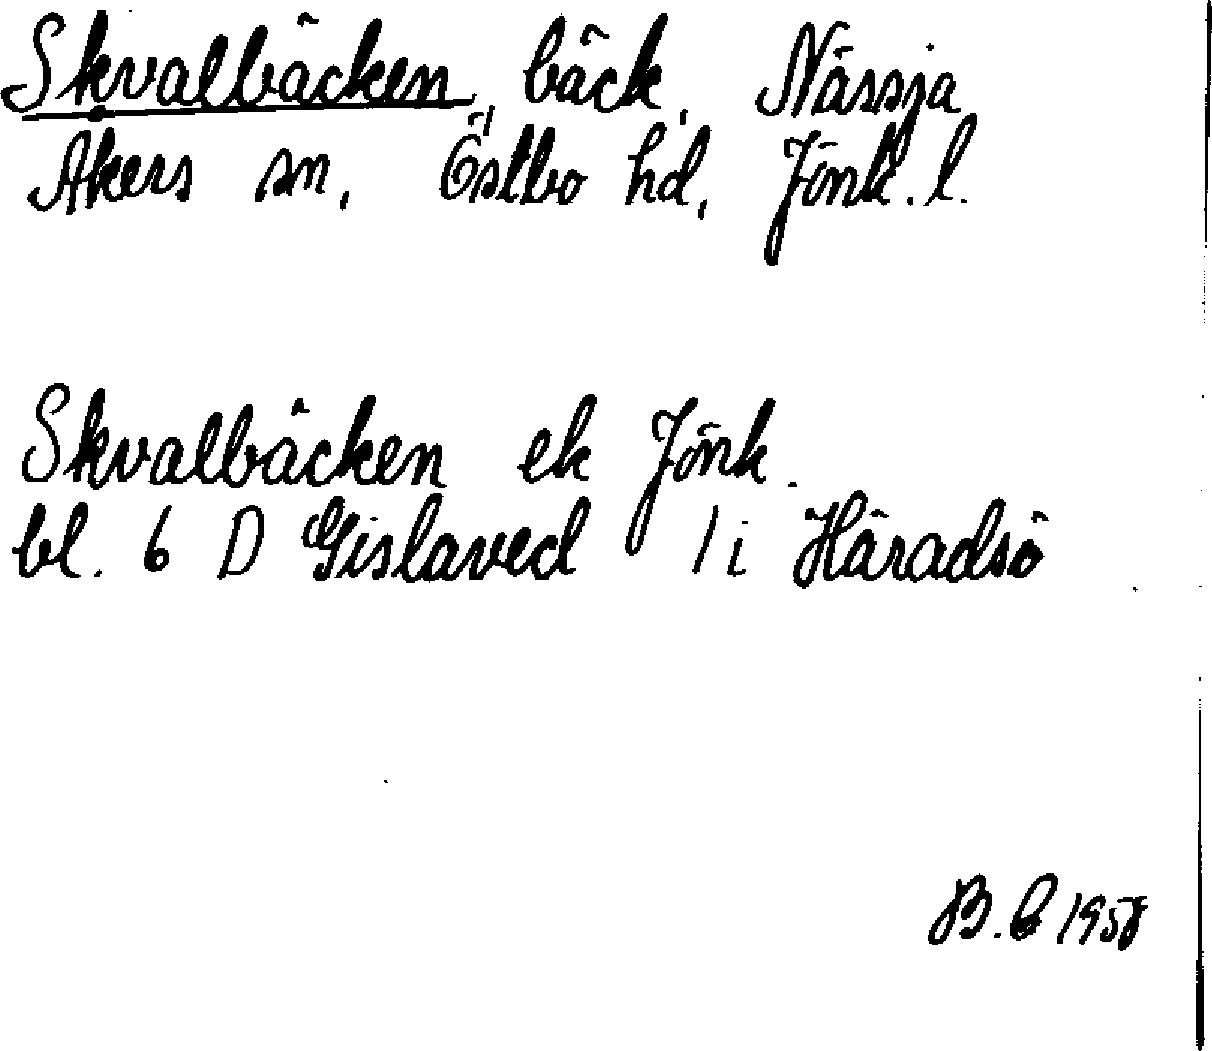 Skvalbäcken, bäck, Nässja
Åkers sn, Östbo hd, Jönk. l.
Skvalbäcken ek Jönk.
bl. 6 D Gislaved 1 i Häradsö
B. E 1958